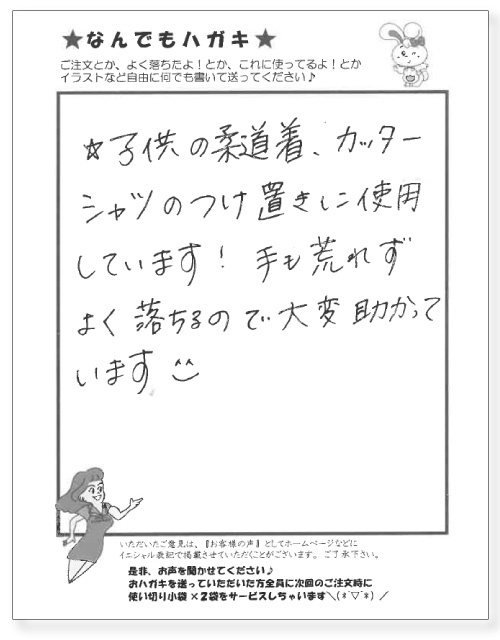 ★なんでもハガキ★
ご注文とか、よく落ちたよ！とか、これに使ってるよ！とか
イラストなど自由に何でも書いて送ってください♪
☆子供の柔道着、カッター
シャツのつけ置きに使用
しています！手も荒れず
よく落ちるので大変助かって
います
いただいたご意見は、『お客様の声』としてホームページなどに
イニシャル表記で掲載させていただくことがございます。ご了承下さい。
是非、お声を聞かせてください♪
おハガキを送っていただいた方全員に次回のご注文時に
使い切り小袋×2袋をサービスしちゃいます＼(*´▽`*)／